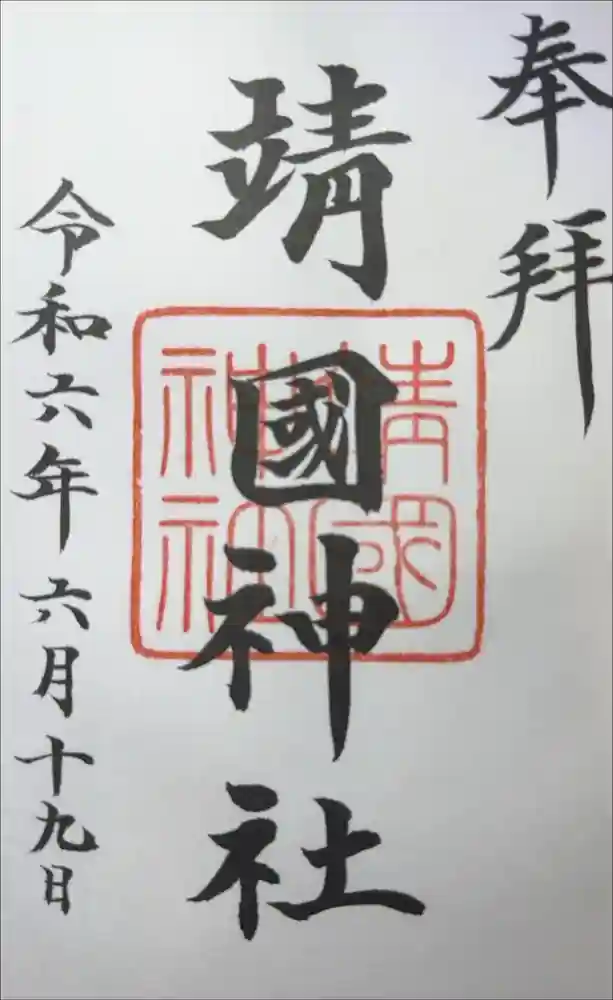 奉拜
靖國神社
靖國神社
令和六年六月十九日